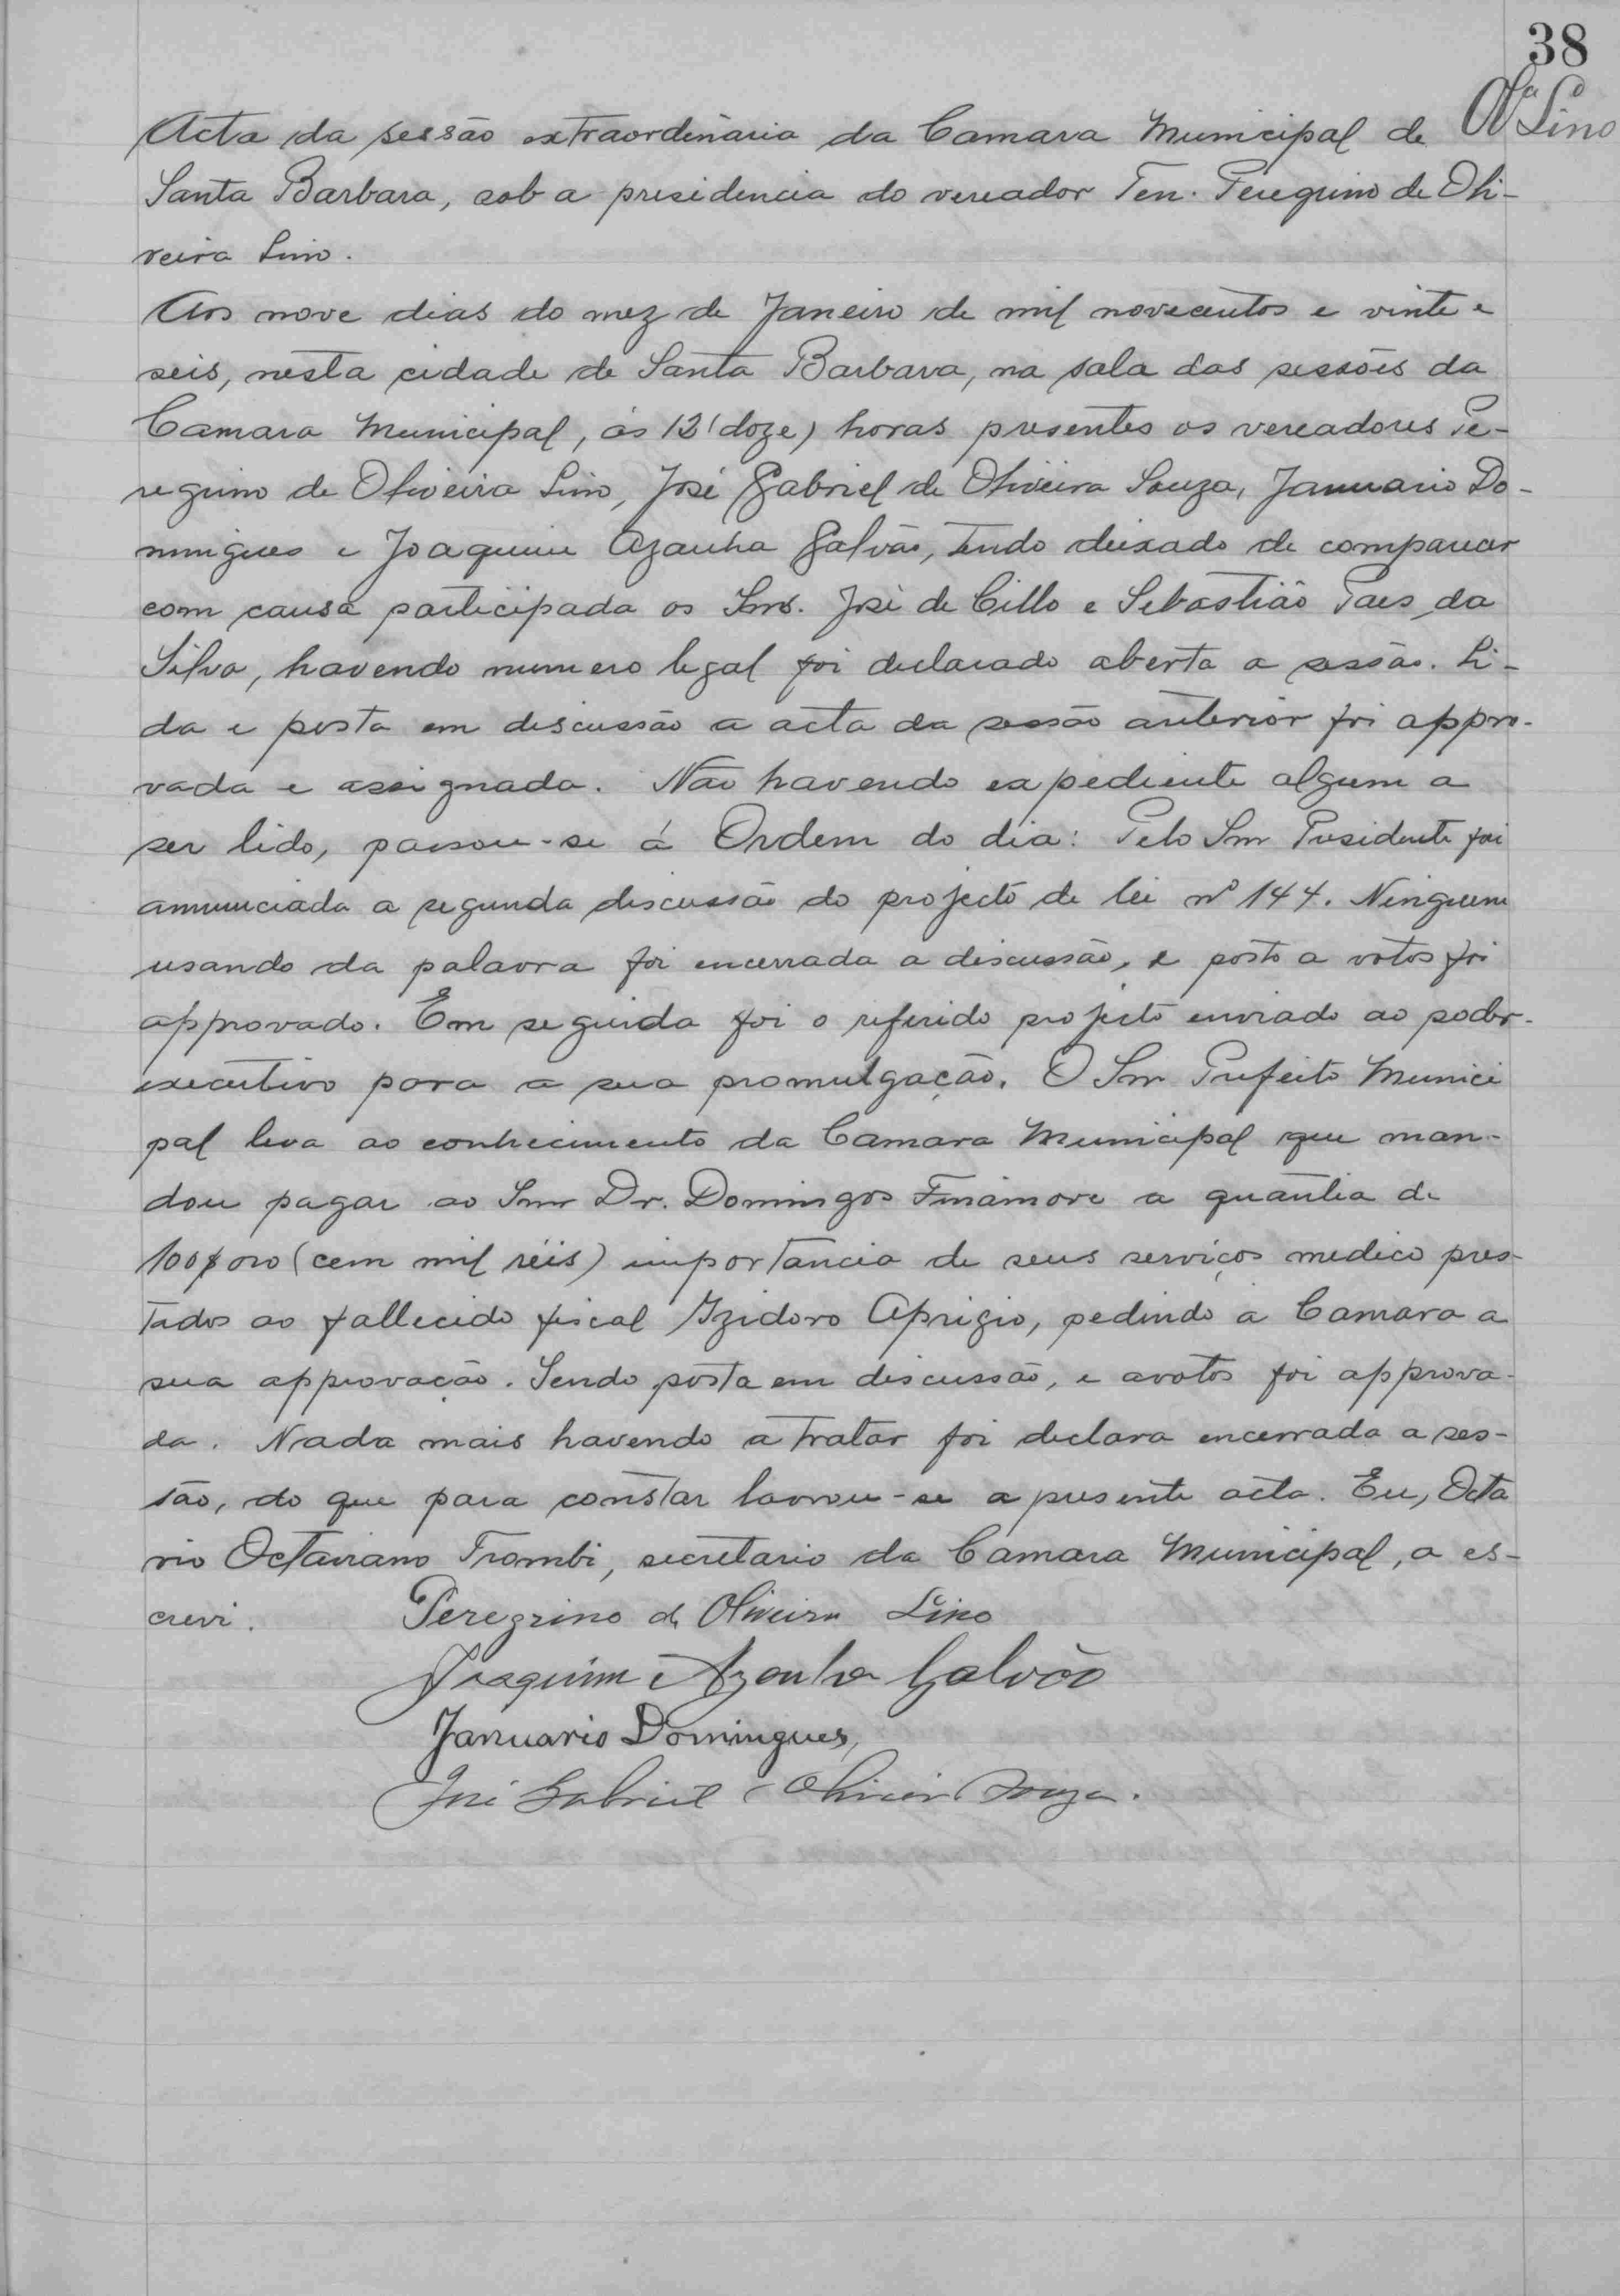 38
Olª Lino
Acta da sessão extraordinaria da Camara Municipal de
Santa Barbara, sob a presidencia do vereador Ten. Peregrino de Oli-
veira Lino.
Aos nove dias do mez de Janeiro de mil novecentos e vinte e
seis, nesta cidade de Santa Barbara, na sala das sessões da
Camara Municipal, ás 12 (doze) horas presentes os vereadores Pe-
regrino de Oliveira Lino, José Gabriel de Oliveira Souza, Januario Do-
mingues e Joaquim Azanha Galvão, tendo deixado de comparecer
com causa participada os Snrs. José de Cillo e Sebastião Paes da
Silva, havendo numero legal foi declarado aberta a sessão. Li-
da e posta em discussão a acta da sessão anterior foi appro-
vada e assignada. Não havendo expediente algum a
ser lido, passou-se á Ordem do dia: Pelo Snr Presidente foi
annunciada a segunda discussão do projecto de lei nº 144. Ninguem
usando da palavra foi encerrada a discussão, e posto a votos foi
approvado. Em seguida foi o referido projecto enviado ao poder-
executivo para a sua promulgação. O Snr Prefeito Munici
pal leva ao conhecimento da Camara Municipal que man-
dou pagar ao Snr Dr. Domingos Finamore a quantia de
100$000 (cem mil réis) importancia de seus serviços medico pres-
tados ao fallecido fiscal Izidoro Aprigio, pedindo a Camara a
sua approvação. Sendo posta em discussão, e avotos foi approva-
da. Nada mais havendo a tratar foi declara encerrada a ses-
são, do que para constar lavrou-se a presente acta. Eu, Octa
vio Octaviano Trombi, secretario da Camara Municipal, a es-
crevi. Peregrino de Oliveira Lino
Joaquim Azanha Galvão
Januario Domingues,
José Gabriel Oliveira Souza.